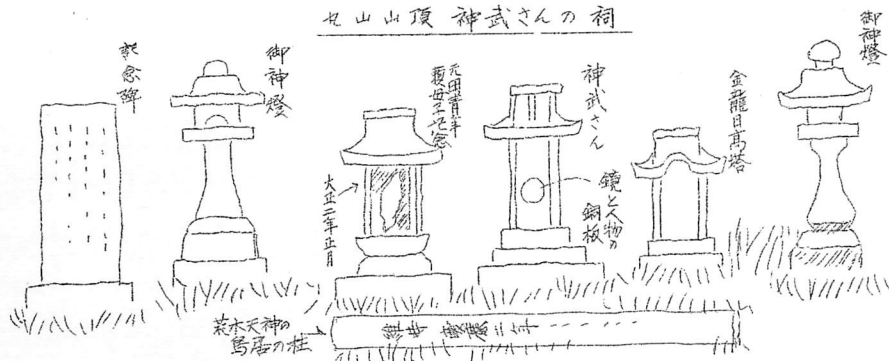 丸山山頂 神武さんの祠
記念碑
御神燈
元田青年
頼母子記念
大正二年正月
神武さん
鏡と人物の
銅板
金龍日高塔
御神燈
荒木天神の
鳥居の柱
維時 慶應二年